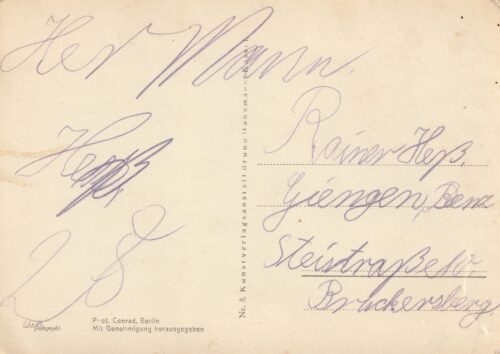 Her Mann.
Heß
28
Rainer Heß.
Giengen, Benz
Steistraße 10.
Bruckersberg
Phot. Conrad, Berlin
Mit Genehmigung herausgegeben
Nr. 8. Kunstverlagsanstalt Bruno Hansmann